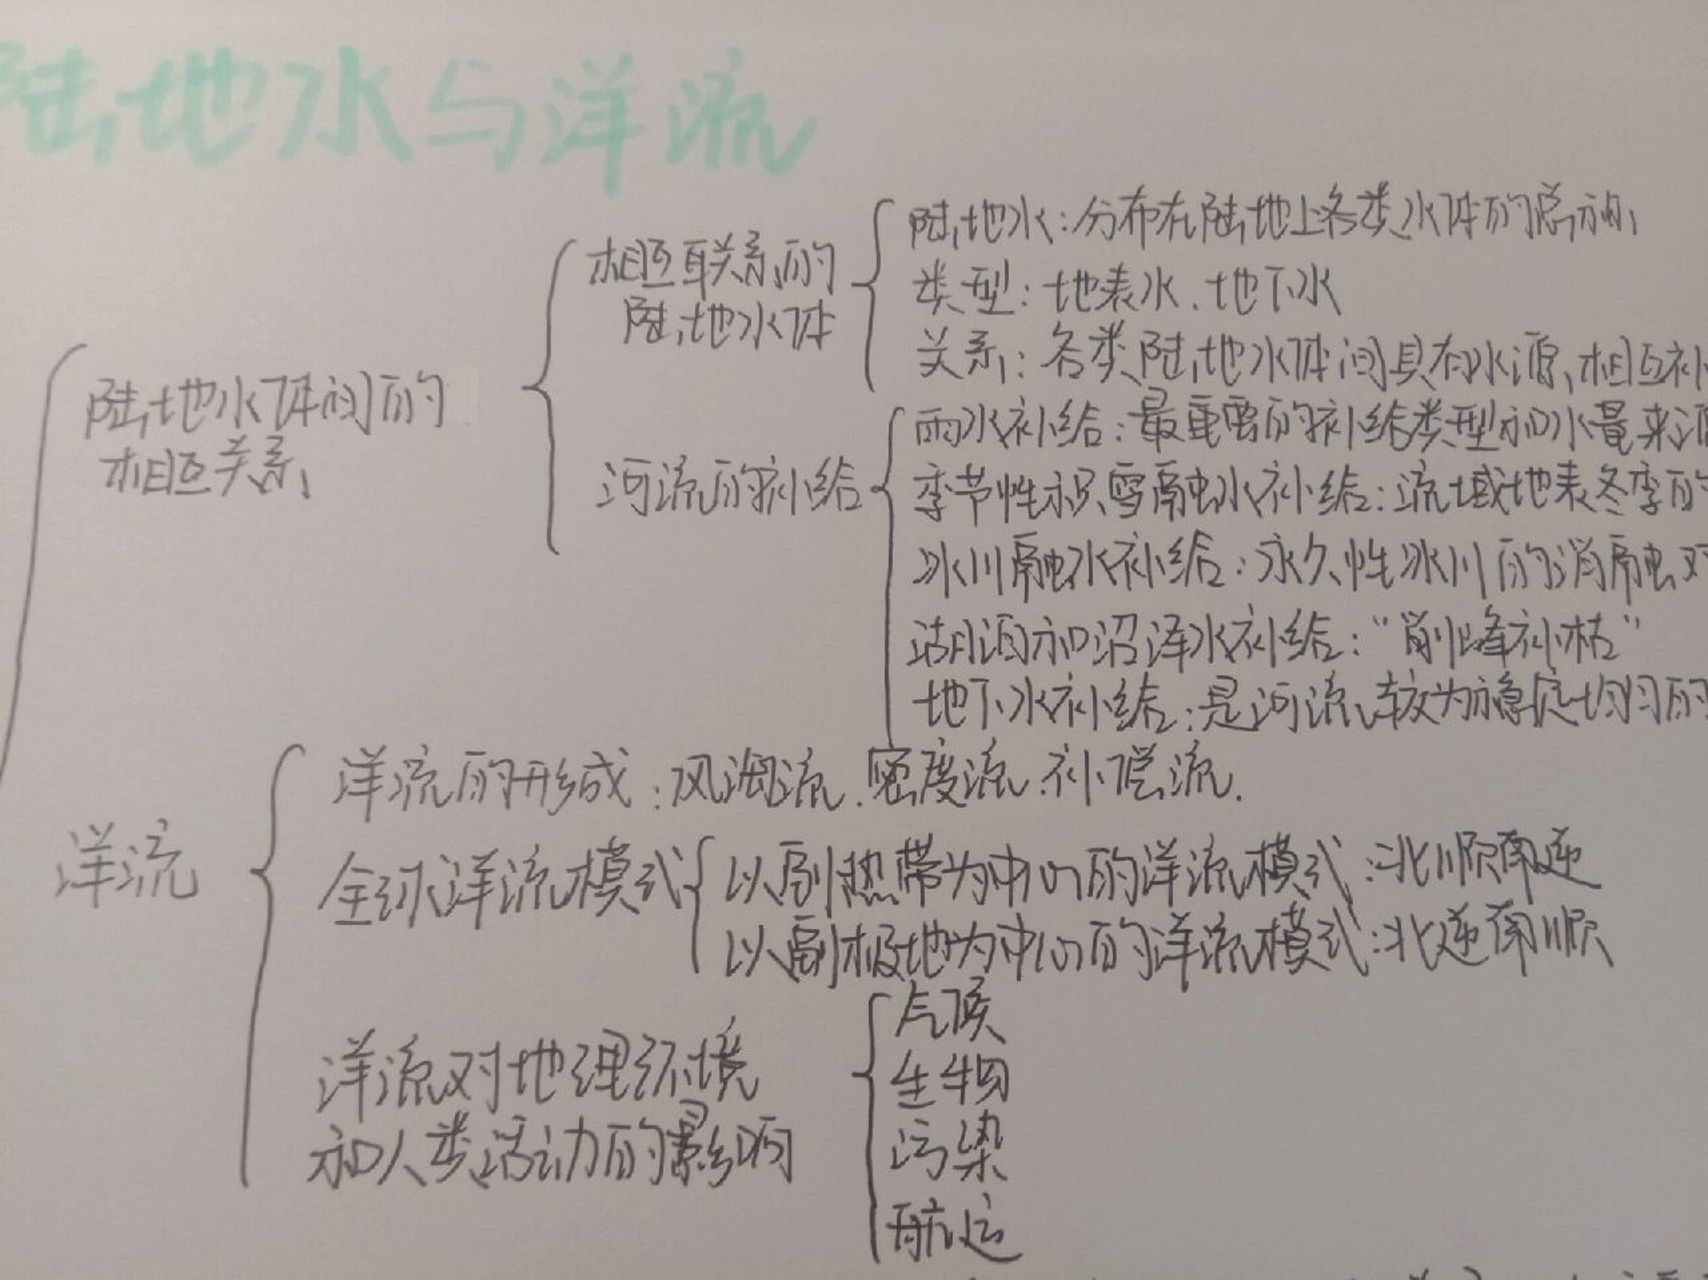 陆地水与洋流
陆地水体间的
相互关系
相互联系的
陆地水体
陆地水:分布在陆地上各类水体的总称
类型:地表水、地下水
关系:各类陆地水体间具有水源相互补
河流的补给
雨水补给:最重要的补给类型和水量来源
季节性积雪融水补给:流域地表冬季的
冰川融水补给:永久性冰川的消融对
湖泊和沼泽水补给:“削峰补枯”
地下水补给:是河流较为稳定均匀的
洋流
洋流的形成:风海流、密度流、补偿流.
全球洋流模式
以副热带为中心的洋流模式:北顺南逆
以副极地为中心的洋流模式:北逆南顺
洋流对地理环境
和人类活动的影响
气候
生物
污染
航运